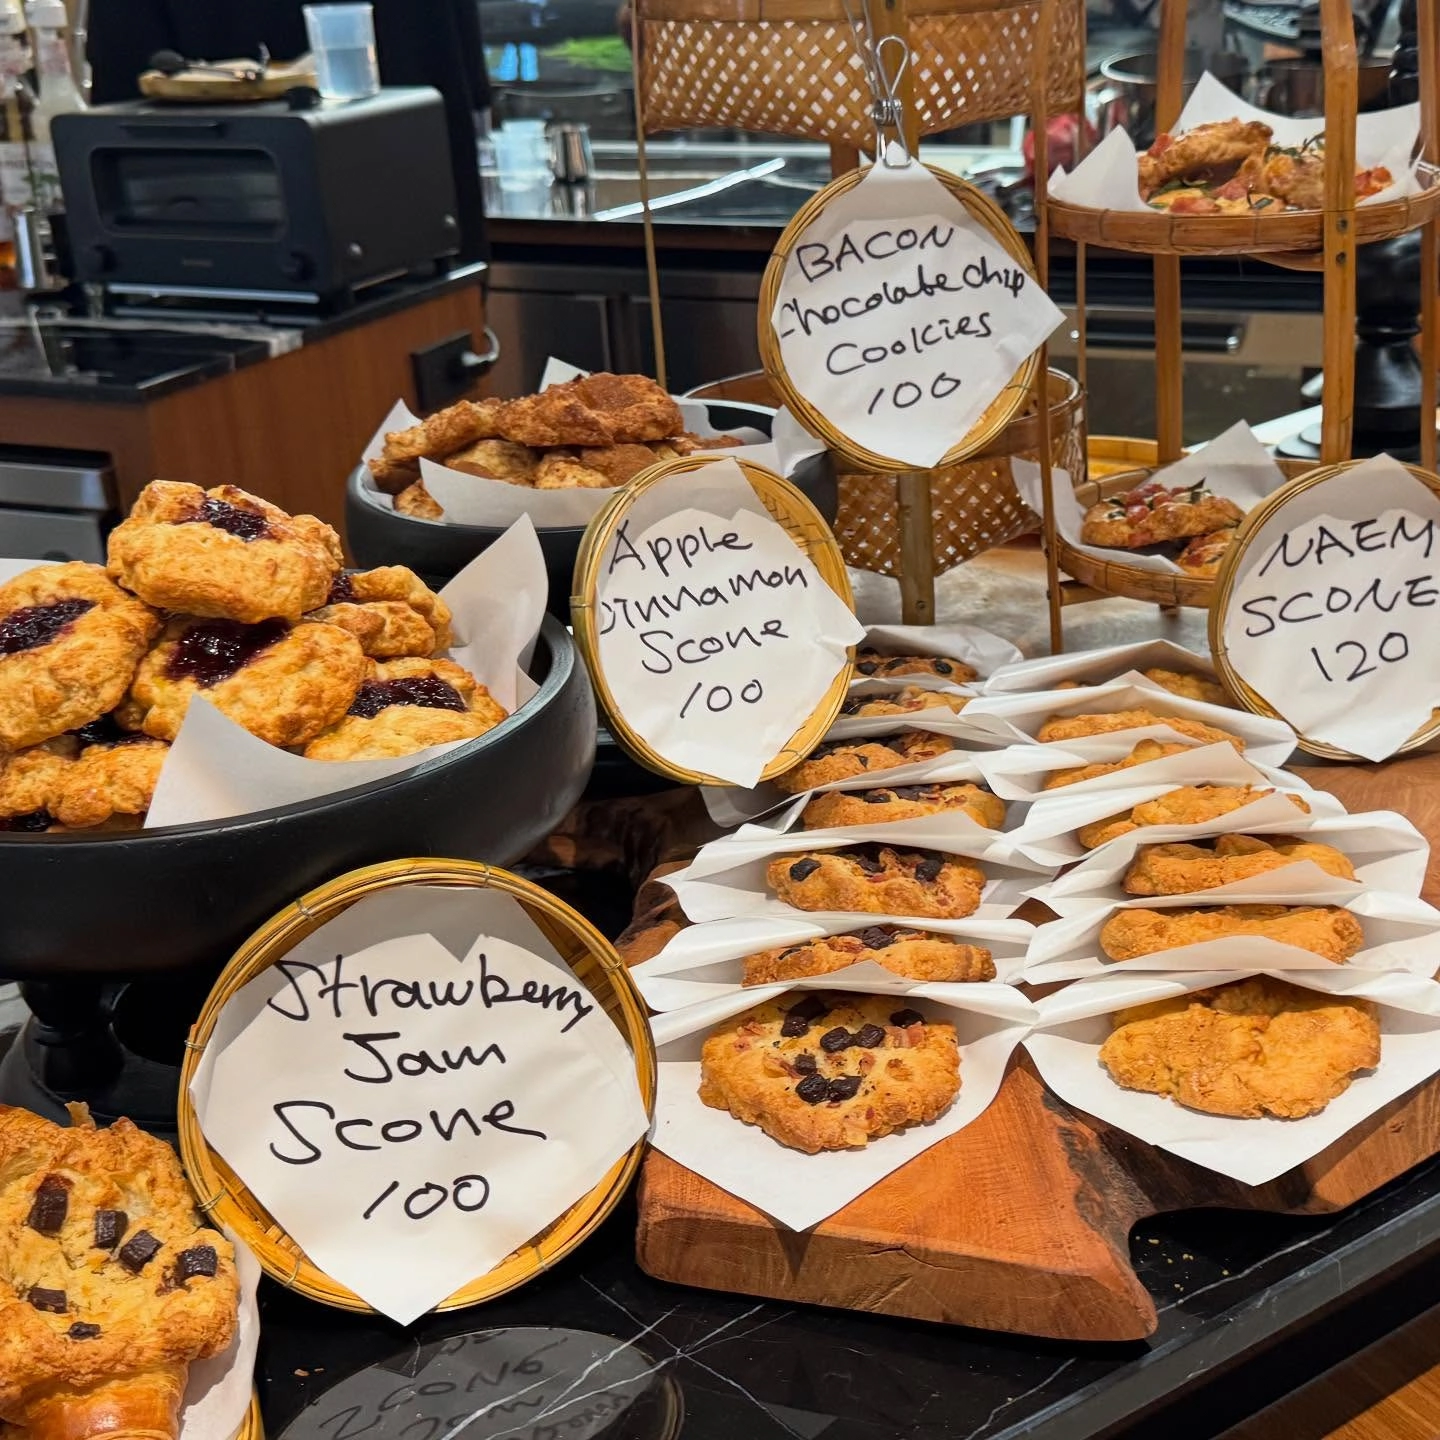 BACON
Chocolate Chip
Cookies
100
Apple
Cinnamon
Scone
100
NAEM
SCONE
120
Strawberry
Jam
Scone
100